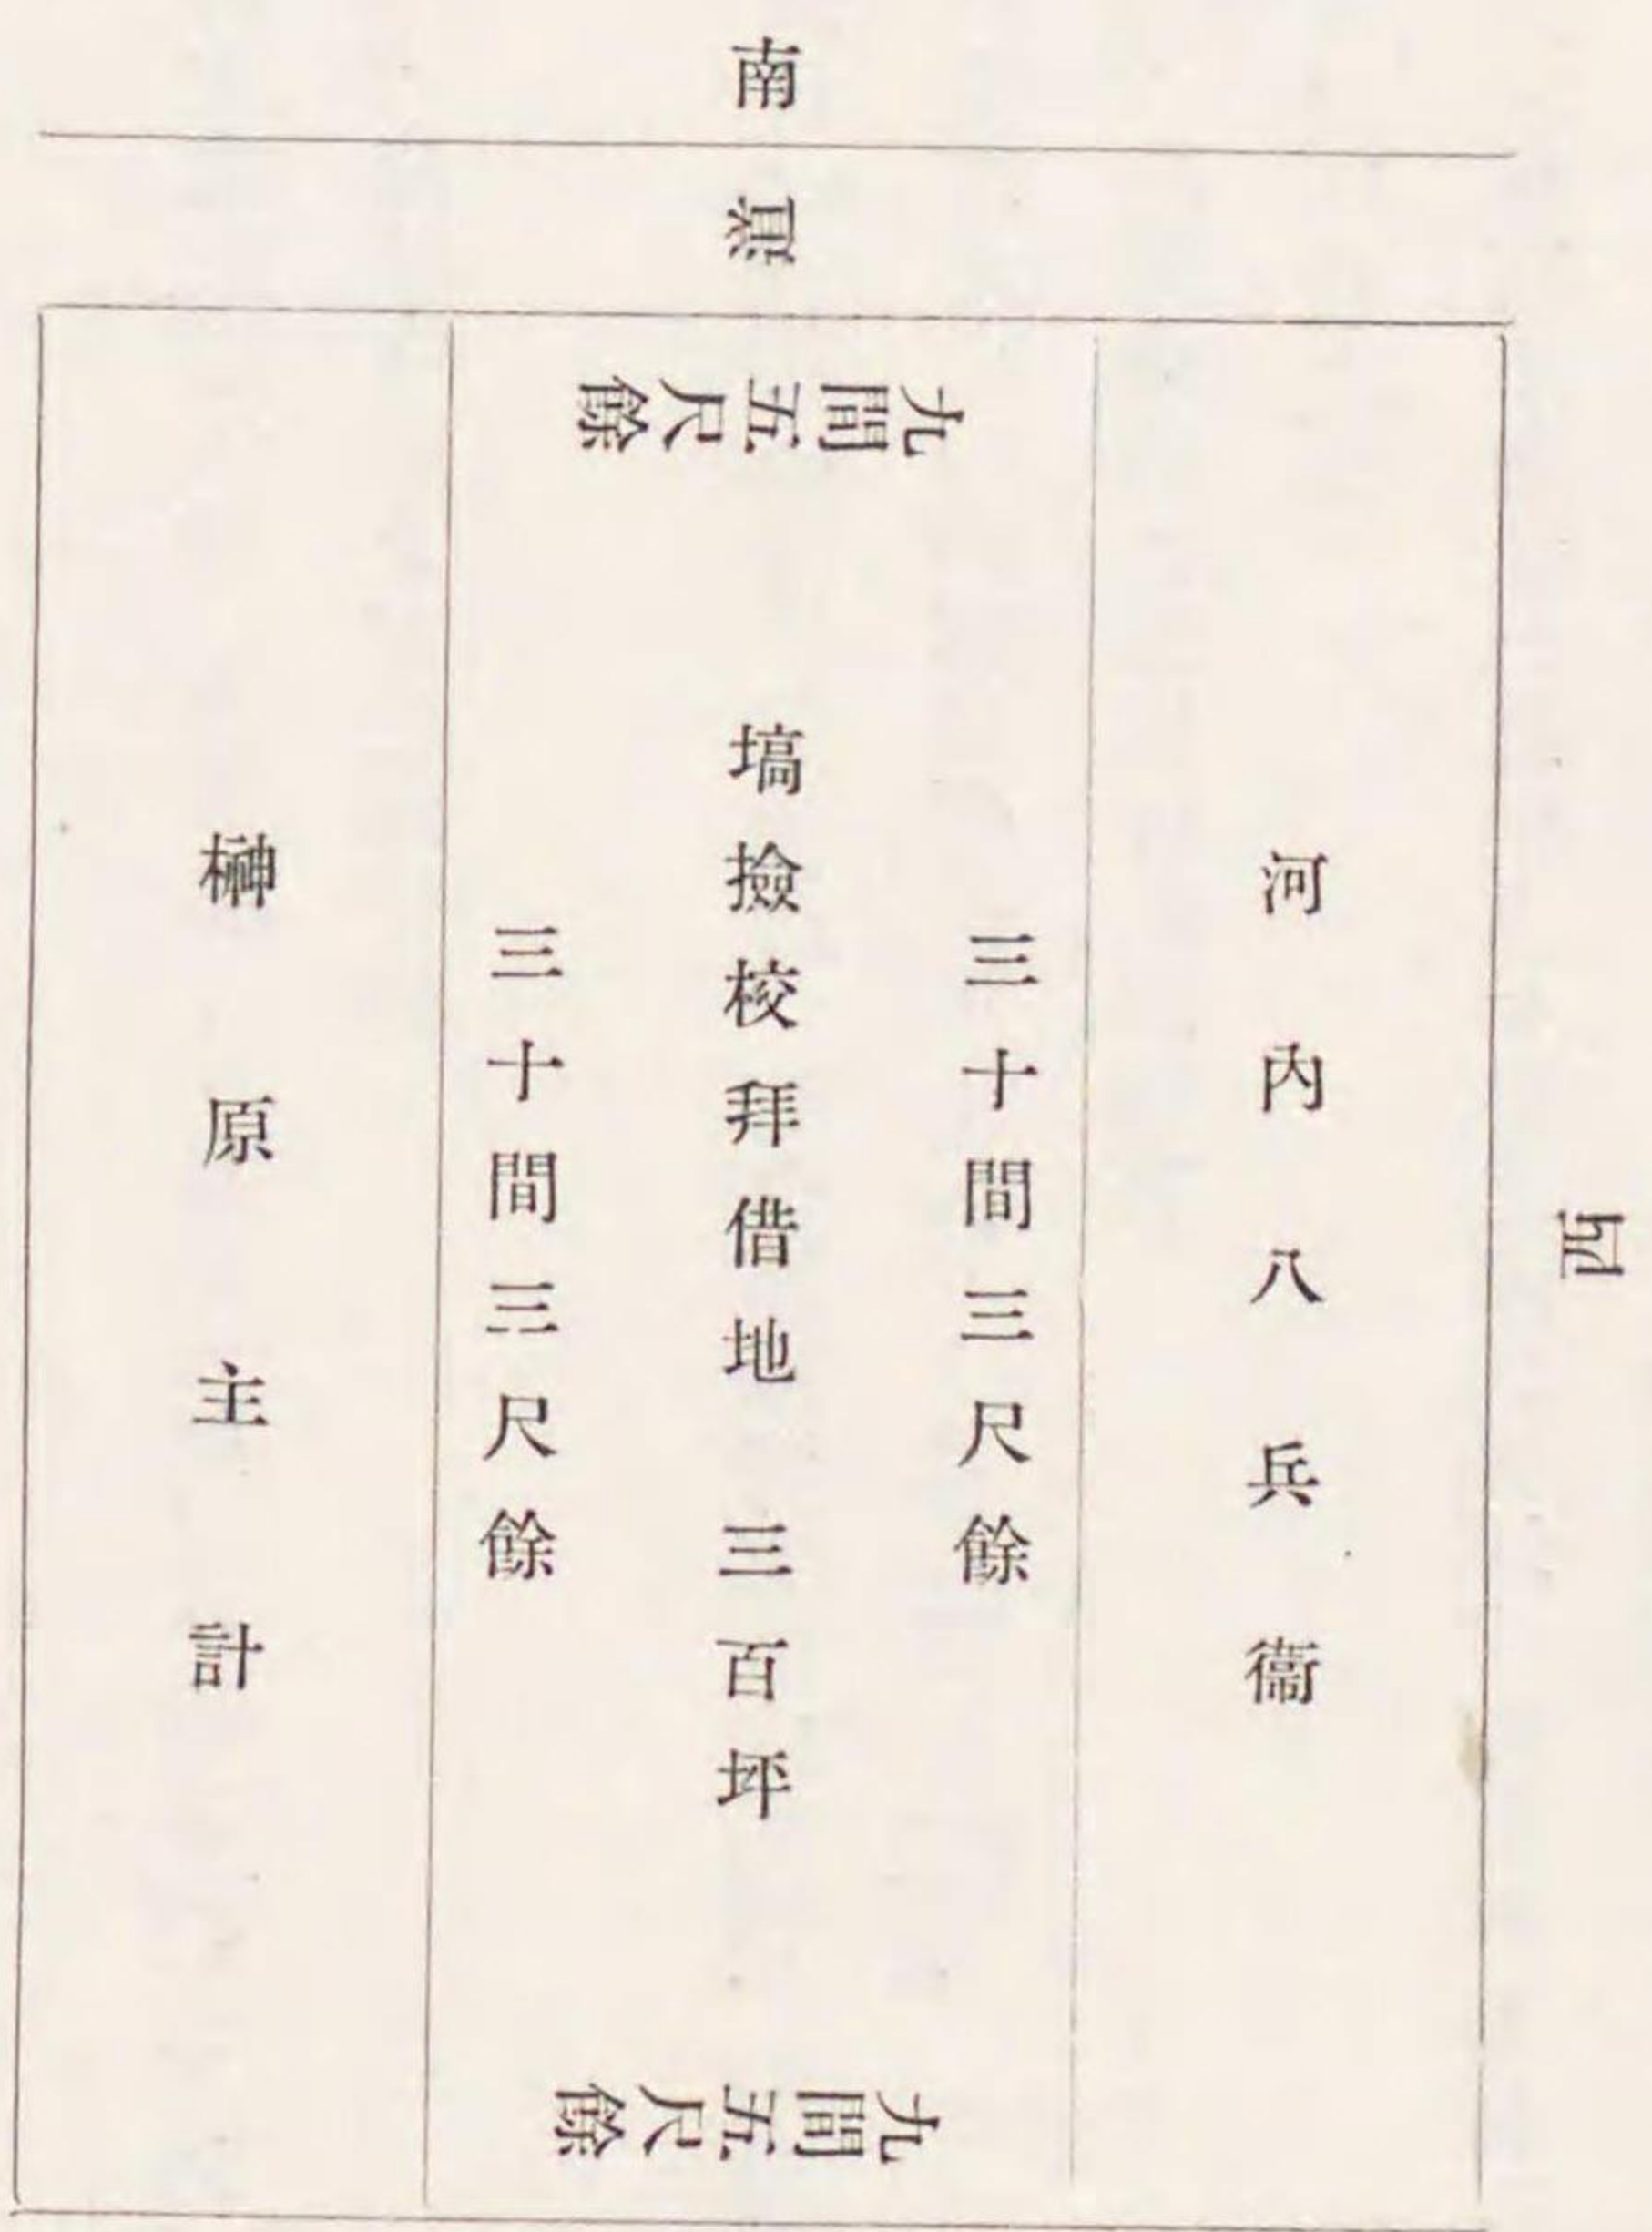 南
西
河內八兵衞
九間五尺餘
三十間三尺餘
塙撿校拜借地 三百坪
三十間三尺餘
九間五尺餘
榊原主計